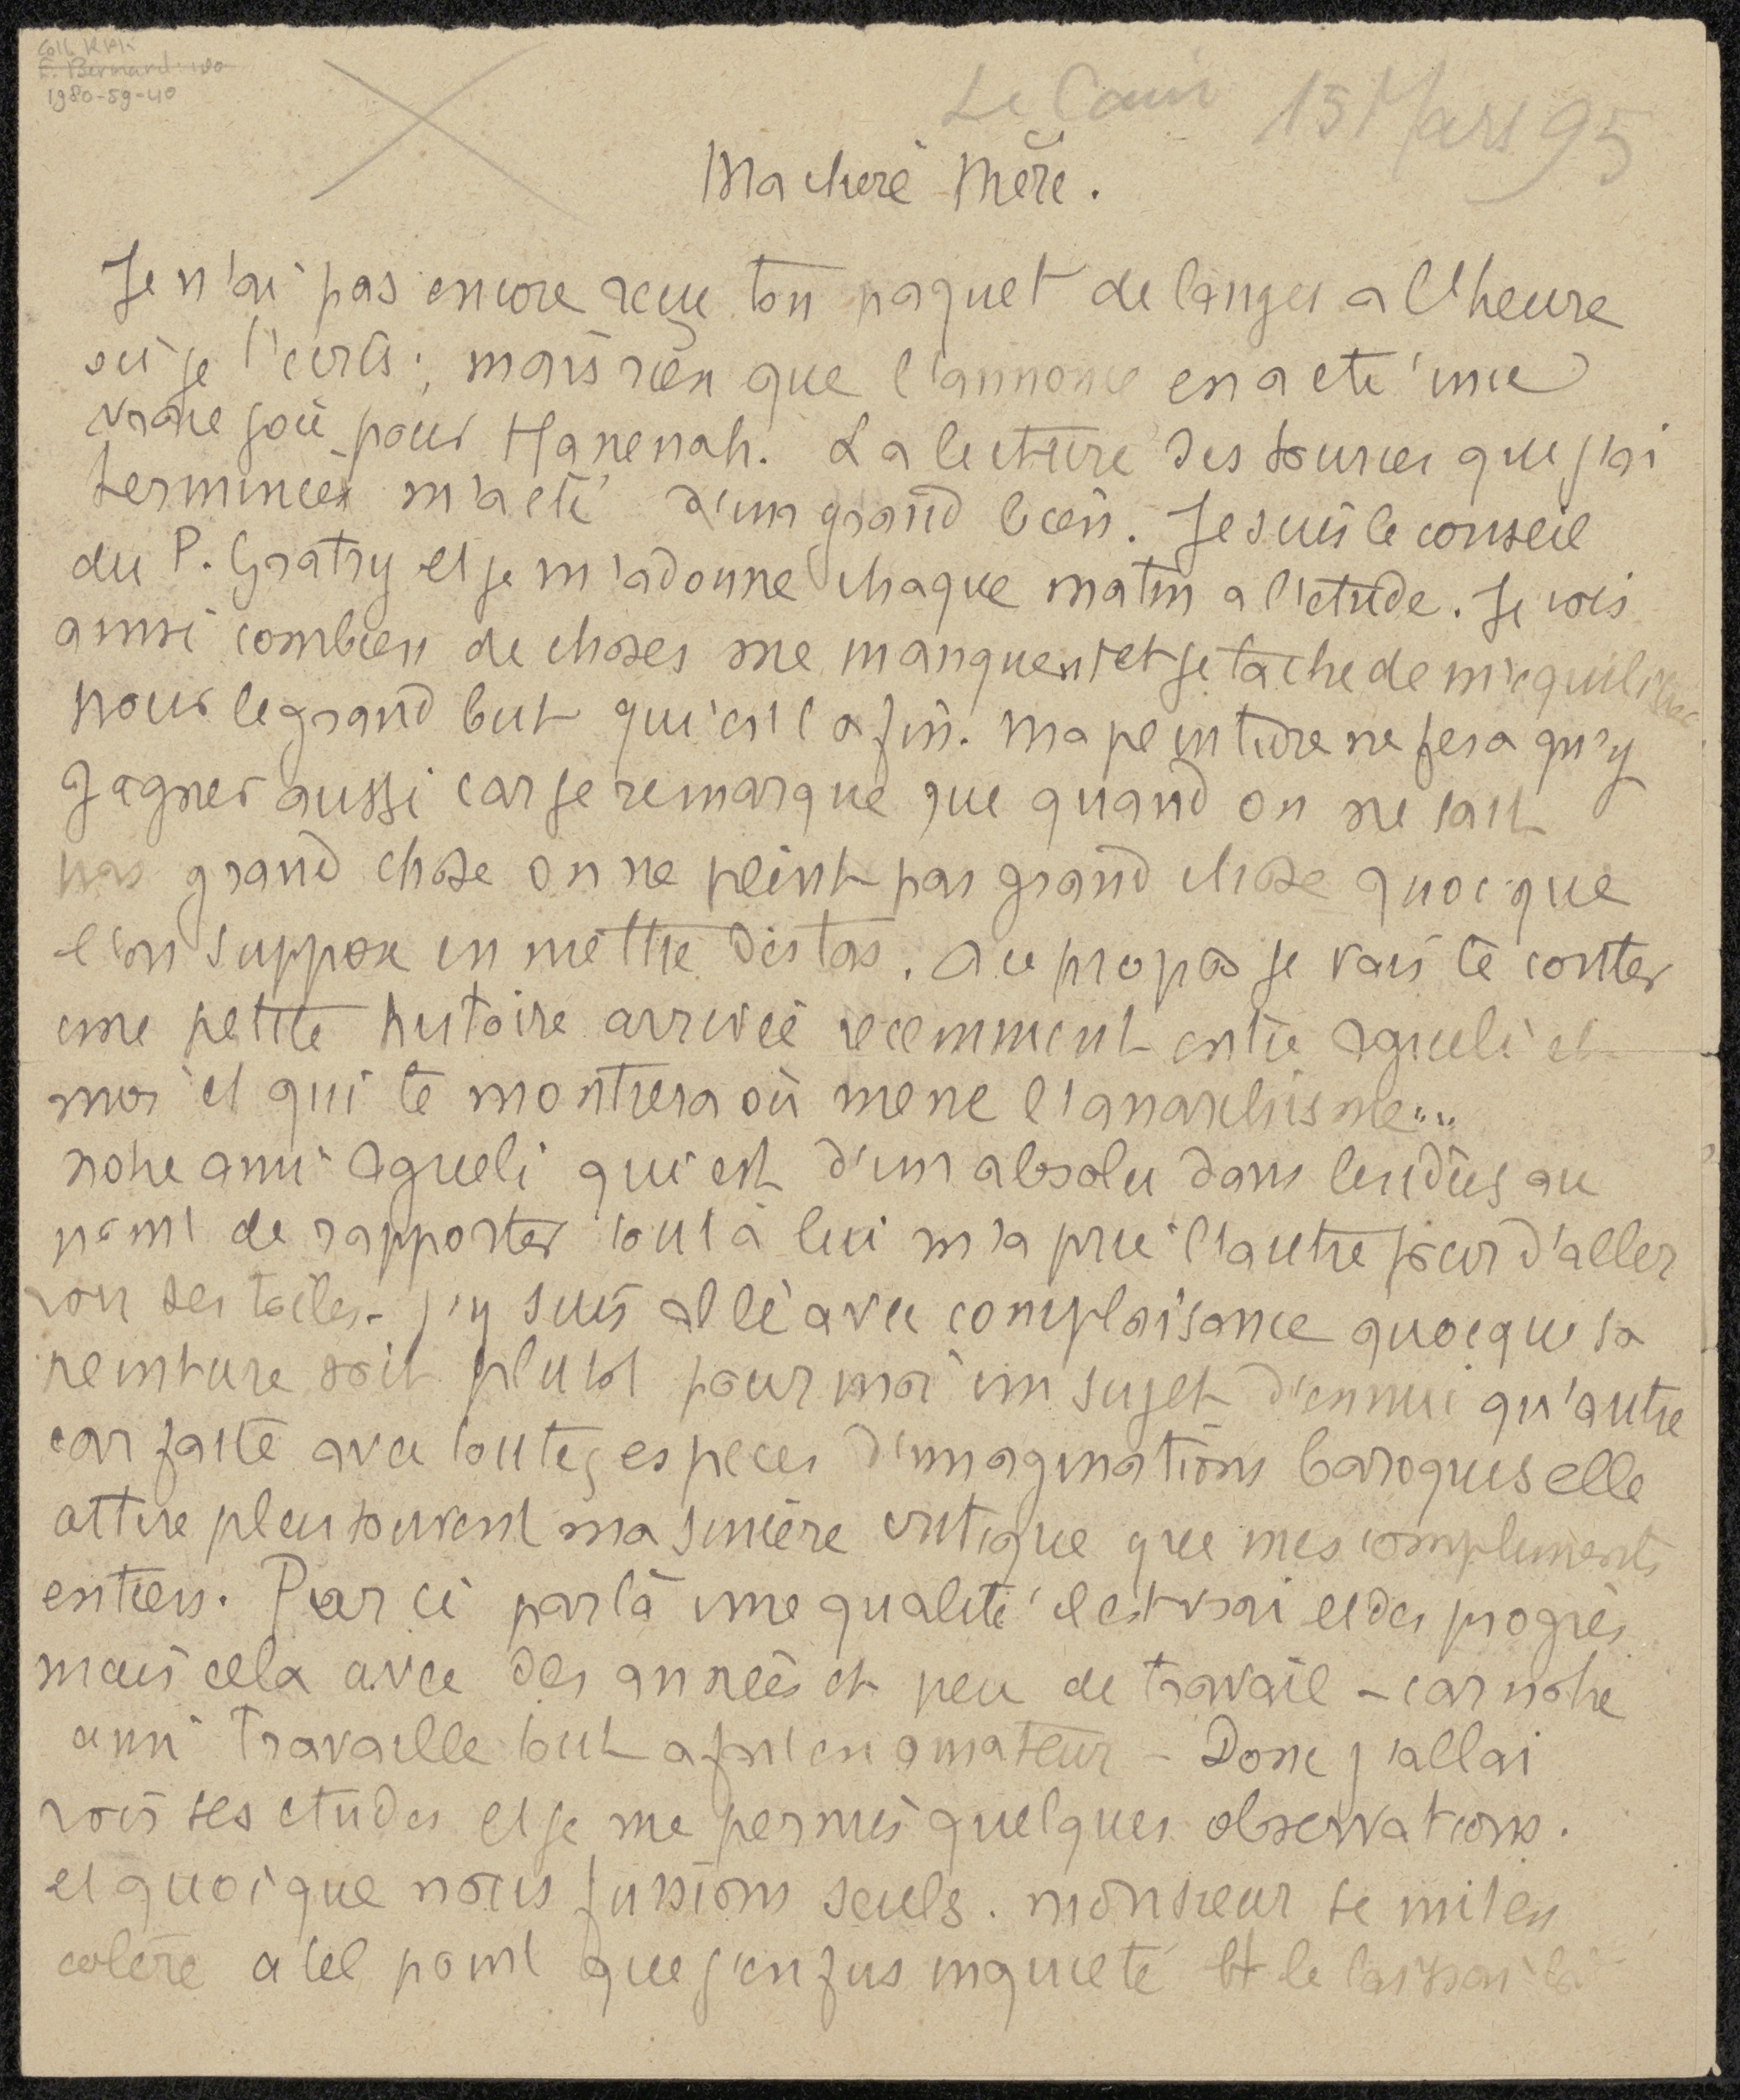 Coll. RPK
E. Bernard 100
1980-59-40
Le Caire 15 Mars 95
Ma chere Mère.
Je n'ai pas encore reçu ton paquet de langes a l'heure
où je t'ecris; mais rien que l'annonce en a eté une
vraie joie pour Hanenah. La lecture des sources que j'ai
terminées m'a eté d'un grand bien. Je suis le conseil
du P. Gratry et je m'adonne chaque matin a l'etude. Je vois
ainsi combien de choses me manquent et je tache de m'equilibrer
pour le grand but qu'est la fin. Ma peinture ne fera qu'y
gagner aussi car je remarque que quand on ne sait
pas grand chose on ne peint pas grand chose quoique
l'on suppose en mettre des tas. A ce propos je vais te conter
une petite histoire arrivée recemment entre Agueli et
moi et qui te montrera où mene l'anarchisme...
notre ami Agueli qui est d'un absolu dans les idées au
point de rapporter tout à lui m'a prié l'autre jour d'aller
voir ses toiles. j'y suis allé avec complaisance quoique sa
peinture soit plutot pour moi un sujet d'ennui qu'autre
car faite avec toutes especes d'imaginations baroques elle
attire plus souvent ma sincère critique que mes compliments
entiers. Par ci par là une qualité il est vrai et des progrès
mais cela avec des années et peu de travail - car notre
ami travaille tout a fait en amateur - Donc j'allai
voir ses etudes et je me permis quelques observations.
et quoique nous fussions seuls. monsieur se mit en
colère a tel point que j'en fus inquieté et le laissai là